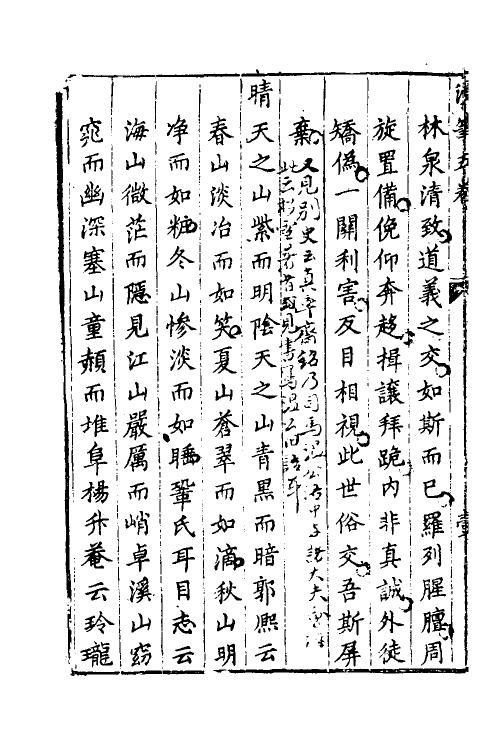 林泉清致道義之交如斯而已羅列腥膻周
旋置備俛仰奔趍揖讓拜跪内非真誠外徒
矯偽一關利害反目相視此世俗交吾斯屏
棄
又見別史云真率齋銘乃司馬温公
晴天之山紫而明陰天之山青黑而暗郭熈云
春山淡冶而如笑夏山蒼翠而如滴秋山明
净而如粧冬山慘淡而如睡鞏氏耳目志云
海山微茫而隱見江山嚴厲而峭卓溪山窈
窕而幽深塞山童頳而堆阜楊升菴云玲瓏